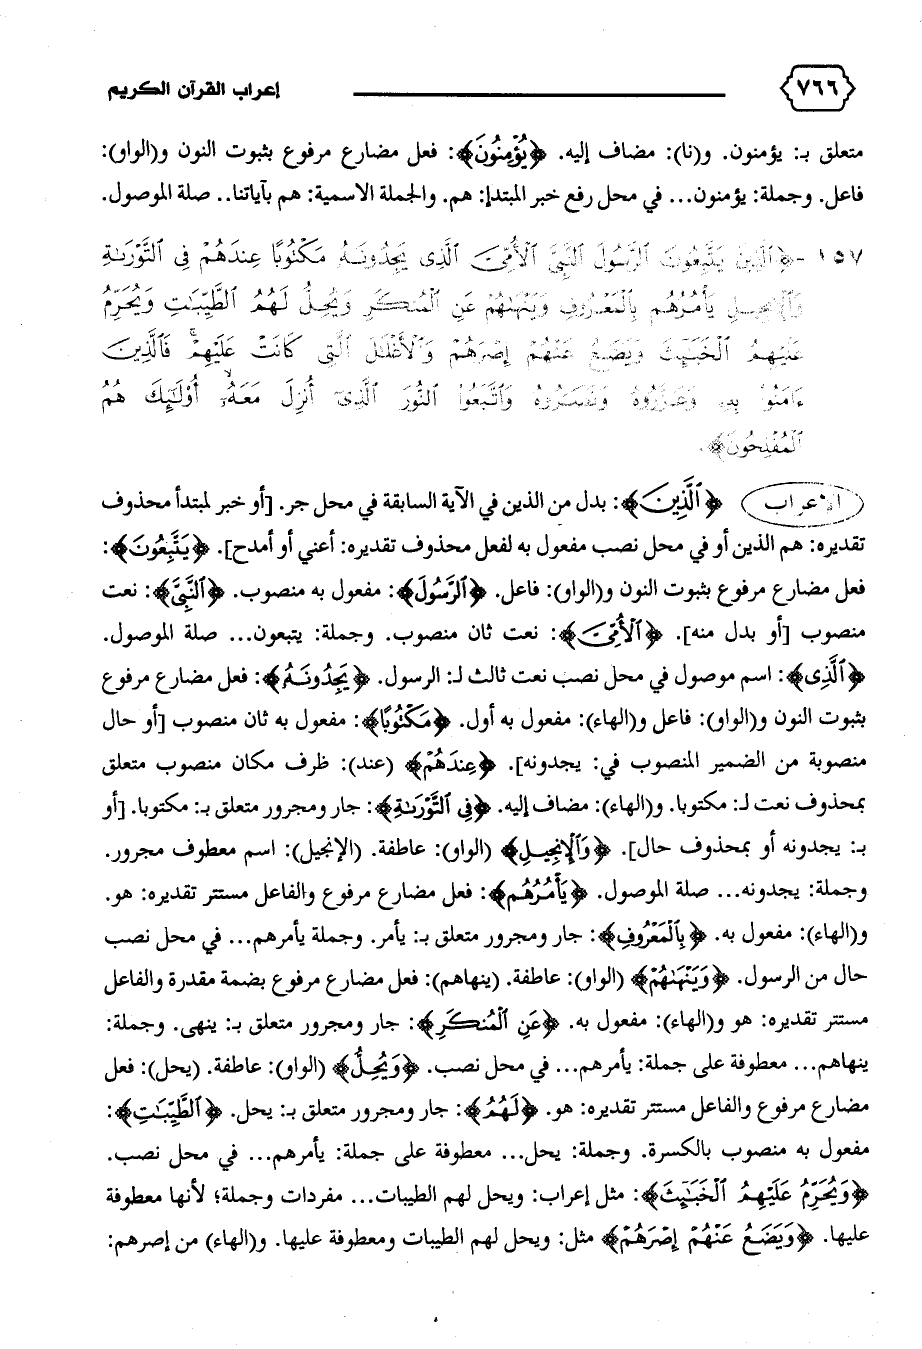 ٧٦٦ إعراب القرآن الكريم
متعلق بـ: يؤمنون. و(نا): مضاف إليه. ﴿يُؤْمِنُونَ﴾: فعل مضارع مرفوع بثبوت النون و(الواو):
فاعل. وجملة: يؤمنون... في محل رفع خبر المبتدإ: هم. والجملة الاسمية: هم بآياتنا.. صلة الموصول.
١٥٧ -﴿الَّذِينَ يَتَّبِعُونَ الرَّسُولَ النَّبِيَّ الْأُمِّيَّ الَّذِي يَجِدُونَهُ مَكْتُوبًا عِندَهُمْ فِي التَّوْرَىٰةِ
وَالْإِنجِيلِ يَأْمُرُهُم بِالْمَعْرُوفِ وَيَنْهَىٰهُمْ عَنِ الْمُنكَرِ وَيُحِلُّ لَهُمُ الطَّيِّبَٰتِ وَيُحَرِّمُ
عَلَيْهِمُ الْخَبَٰٓئِثَ وَيَضَعُ عَنْهُمْ إِصْرَهُمْ وَالْأَغْلَٰلَ الَّتِي كَانَتْ عَلَيْهِمْ ۚ فَالَّذِينَ
ءَامَنُوا بِهِ وَعَزَّرُوهُ وَنَصَرُوهُ وَاتَّبَعُوا النُّورَ الَّذِيٓ أُنزِلَ مَعَهُٓ ۙ أُوْلَٰٓئِكَ هُمُ
الْمُفْلِحُونَ﴾.
الإعراب ﴿الَّذِينَ﴾: بدل من الذين في الآية السابقة في محل جر. [أو خبر لمبتدأ محذوف
تقديره: هم الذين أو في محل نصب مفعول به لفعل محذوف تقديره: أعني أو أمدح]. ﴿يَتَّبِعُونَ﴾:
فعل مضارع مرفوع بثبوت النون و(الواو): فاعل. ﴿الرَّسُولَ﴾: مفعول به منصوب. ﴿النَّبِيَّ﴾: نعت
منصوب [أو بدل منه]. ﴿الْأُمِّيَّ﴾: نعت ثان منصوب. وجملة: يتبعون... صلة الموصول.
﴿الَّذِي﴾: اسم موصول في محل نصب نعت ثالث لـ: الرسول. ﴿يَجِدُونَهُ﴾: فعل مضارع مرفوع
بثبوت النون و(الواو): فاعل و(الهاء): مفعول به أول. ﴿مَكْتُوبًا﴾: مفعول به ثان منصوب [أو حال
منصوبة من الضمير المنصوب في: يجدونه]. ﴿عِندَهُمْ﴾ (عند): ظرف مكان منصوب متعلق
بمحذوف نعت لـ: مكتوبا. و(الهاء): مضاف إليه. ﴿فِي التَّوْرَىٰةِ﴾: جار ومجرور متعلق بـ: مكتوبا. [أو
بـ: يجدونه أو بمحذوف حال]. ﴿وَالْإِنجِيلِ﴾ (الواو): عاطفة. (الإنجيل): اسم معطوف مجرور.
وجملة: يجدونه... صلة الموصول. ﴿يَأْمُرُهُم﴾: فعل مضارع مرفوع والفاعل مستتر تقديره: هو.
و(الهاء): مفعول به. ﴿بِالْمَعْرُوفِ﴾: جار ومجرور متعلق بـ: يأمر. وجملة يأمرهم... في محل نصب
حال من الرسول. ﴿وَيَنْهَىٰهُمْ﴾ (الواو): عاطفة. (ينهاهم): فعل مضارع مرفوع بضمة مقدرة والفاعل
مستتر تقديره: هو و(الهاء): مفعول به. ﴿عَنِ الْمُنكَرِ﴾: جار ومجرور متعلق بـ: ينهى. وجملة:
ينهاهم... معطوفة على جملة: يأمرهم... في محل نصب. ﴿وَيُحِلُّ﴾ (الواو): عاطفة. (يحل): فعل
مضارع مرفوع والفاعل مستتر تقديره: هو. ﴿لَهُمُ﴾: جار ومجرور متعلق بـ: يحل. ﴿الطَّيِّبَٰتِ﴾:
مفعول به منصوب بالكسرة. وجملة: يحل... معطوفة على جملة: يأمرهم... في محل نصب.
﴿وَيُحَرِّمُ عَلَيْهِمُ الْخَبَٰٓئِثَ﴾: مثل إعراب: ويحل لهم الطيبات... مفردات وجملة؛ لأنها معطوفة
عليها. ﴿وَيَضَعُ عَنْهُمْ إِصْرَهُمْ﴾ مثل: ويحل لهم الطيبات ومعطوفة عليها. و(الهاء) من إصرهم: